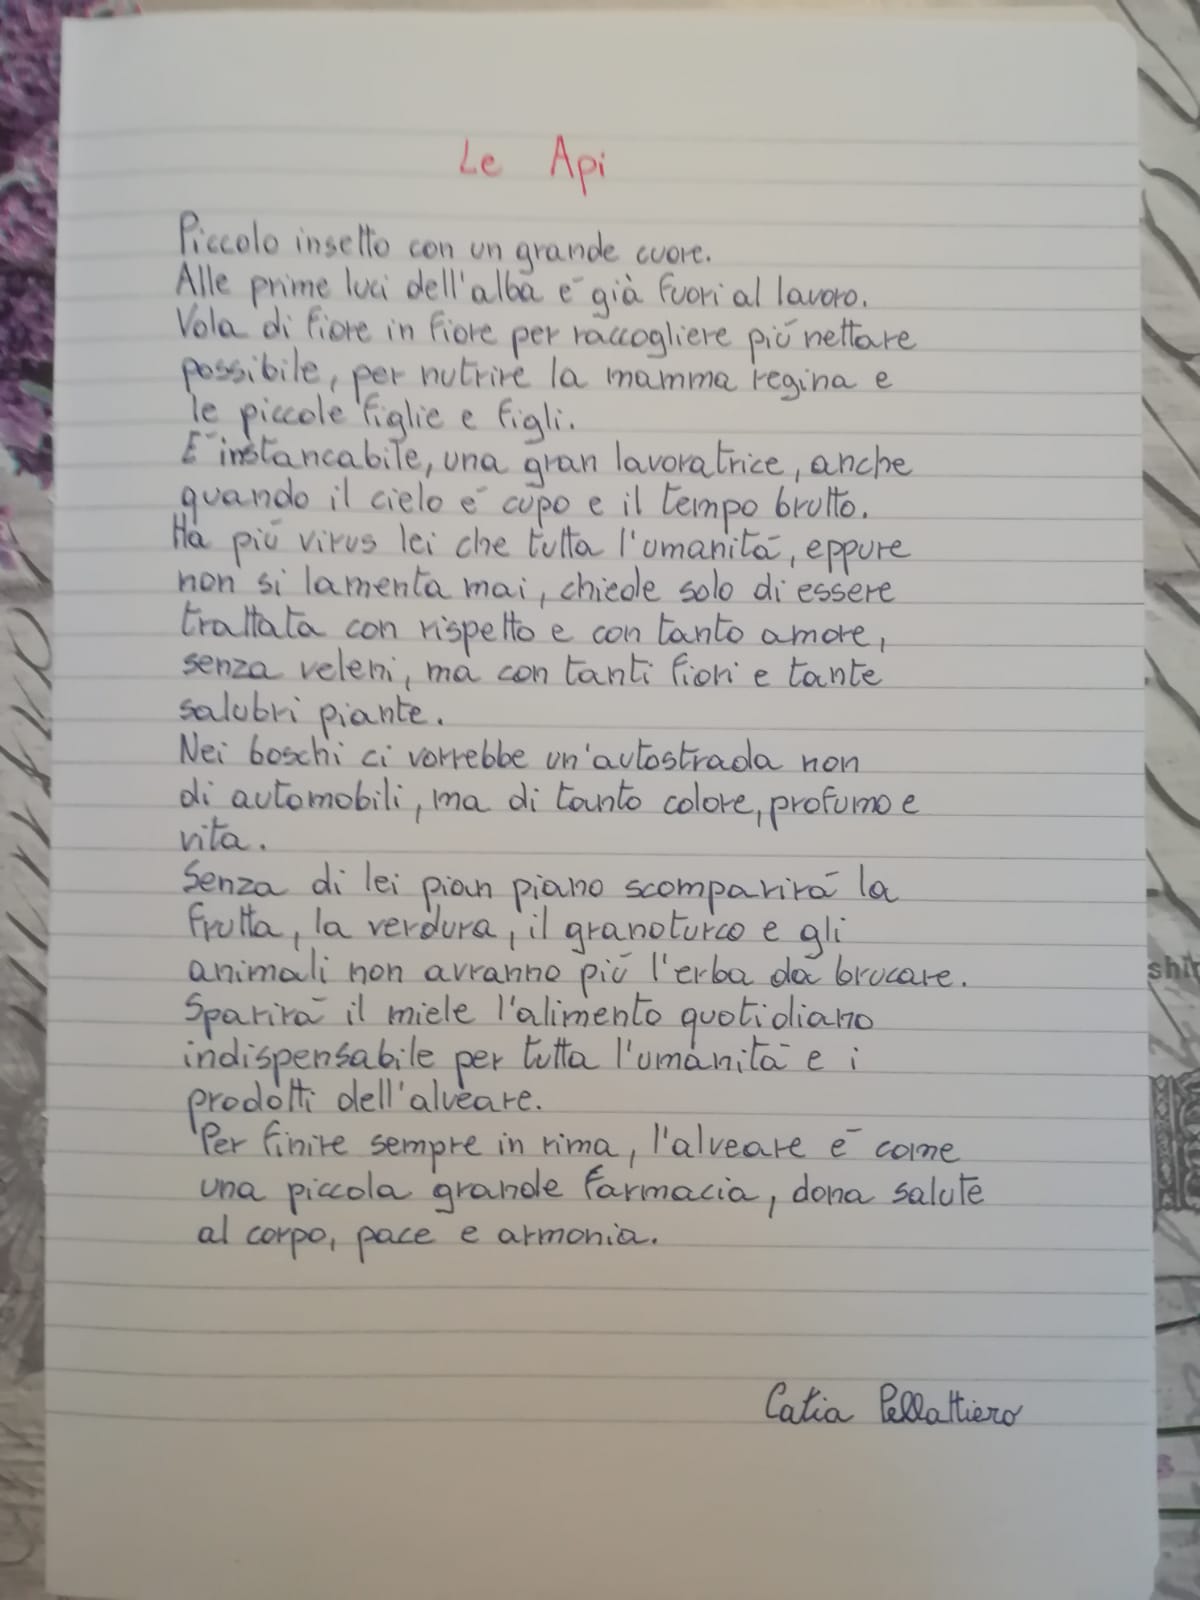 Le Api
Piccolo insetto con un grande cuore.
Alle prime luci dell'alba è già fuori al lavoro.
Vola di fiore in fiore per raccogliere più nettare
possibile, per nutrire la mamma regina e
le piccole figlie e figli.
È instancabile, una gran lavoratrice, anche
quando il cielo è cupo e il tempo brutto.
Ha più virus lei che tutta l'umanità, eppure
non si lamenta mai, chiede solo di essere
trattata con rispetto e con tanto amore,
senza veleni, ma con tanti fiori e tante
salubri piante.
Nei boschi ci vorrebbe un'autostrada non
di automobili, ma di tanto colore, profumo e
vita.
Senza di lei pian piano scomparirà la
frutta, la verdura, il granoturco e gli
animali non avranno più l'erba da brucare.
Sparirà il miele l'alimento quotidiano
indispensabile per tutta l'umanità e i
prodotti dell'alveare.
Per finire sempre in rima, l'alveare è come
una piccola grande farmacia, dona salute
al corpo, pace e armonia.
Catia Pellattiero